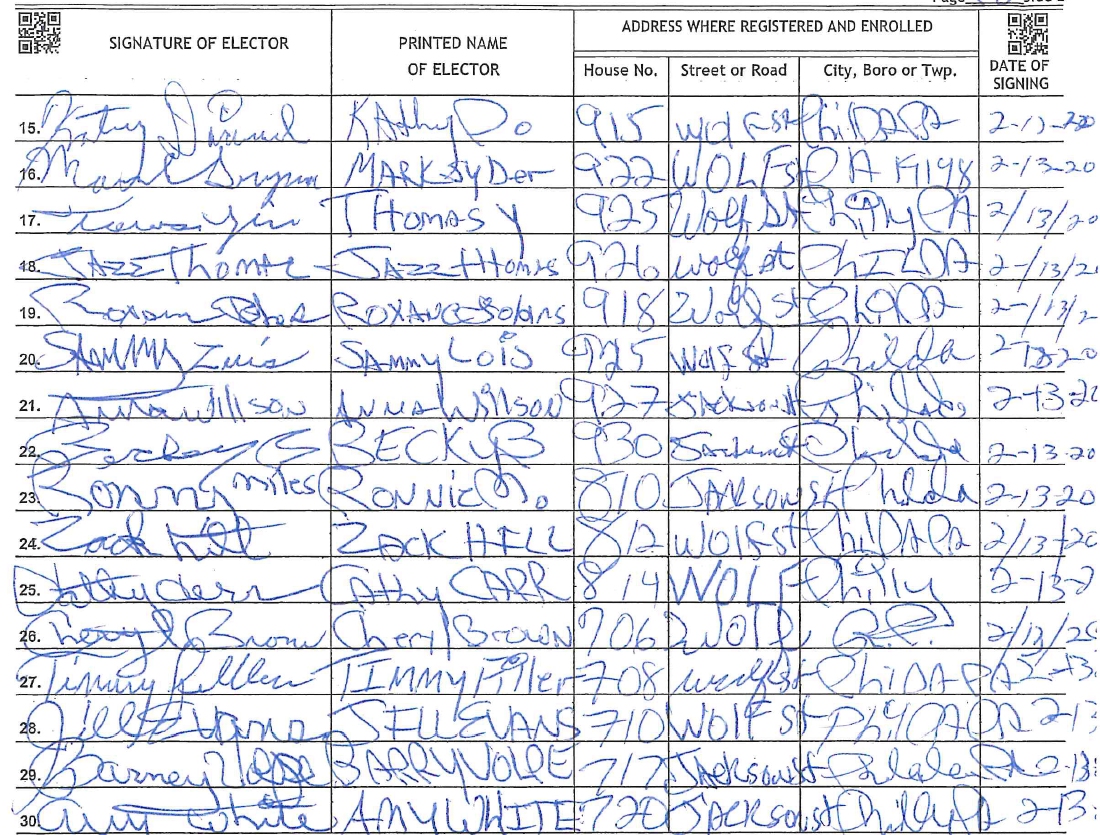 Page
SIGNATURE OF ELECTOR PRINTED NAME OF ELECTOR ADDRESS WHERE REGISTERED AND ENROLLED DATE OF SIGNING
House No. Street or Road City, Boro or Twp.
15. Kathy KAthy Do 915 wolf st PhilDA PA
16. Mark MARK SyDer 922 WOLF st PA 19148 2-13-20
17. THOMAS Y 925 Wolf St Philly PA 2/13/20
18. JAZZ Thomas JAZZ tHomas 926 wolf st PhILDA 2/13/20
19. 918 Wolf st 2-/13/2
20. SAMMY Luis SAMMY LOiS 925 Wolf St Philda 2-13-20
21. Anna Willson ANNA Willson 927 Jackson st Philda 2-13-20
22. Becky B BECKY B 930 Philda 2-13-20
23. Ronny miles RONNie Mo 810 JACKSON st Philda 2-13-20
24. Zack hill ZACK HILL 812 WOlf st PhilDA PA 2/13/20
25. CAthy CARR 814 WOLF Philly 2-13-2
26. Cheryl Brown Cheryl Brown 706 WOlf 2/13/20
27. Timmy TIMMY Filler 708 wolf st PhiDA PA 2-13
28. Jill EVANS JILL EVANS 710 WOlf st 2-13
29. Barney BARRY VOLPE 717 JACKson st 2-13
30. Amy White AMY WHITE 720 JACKSON st Philly PA 2-13